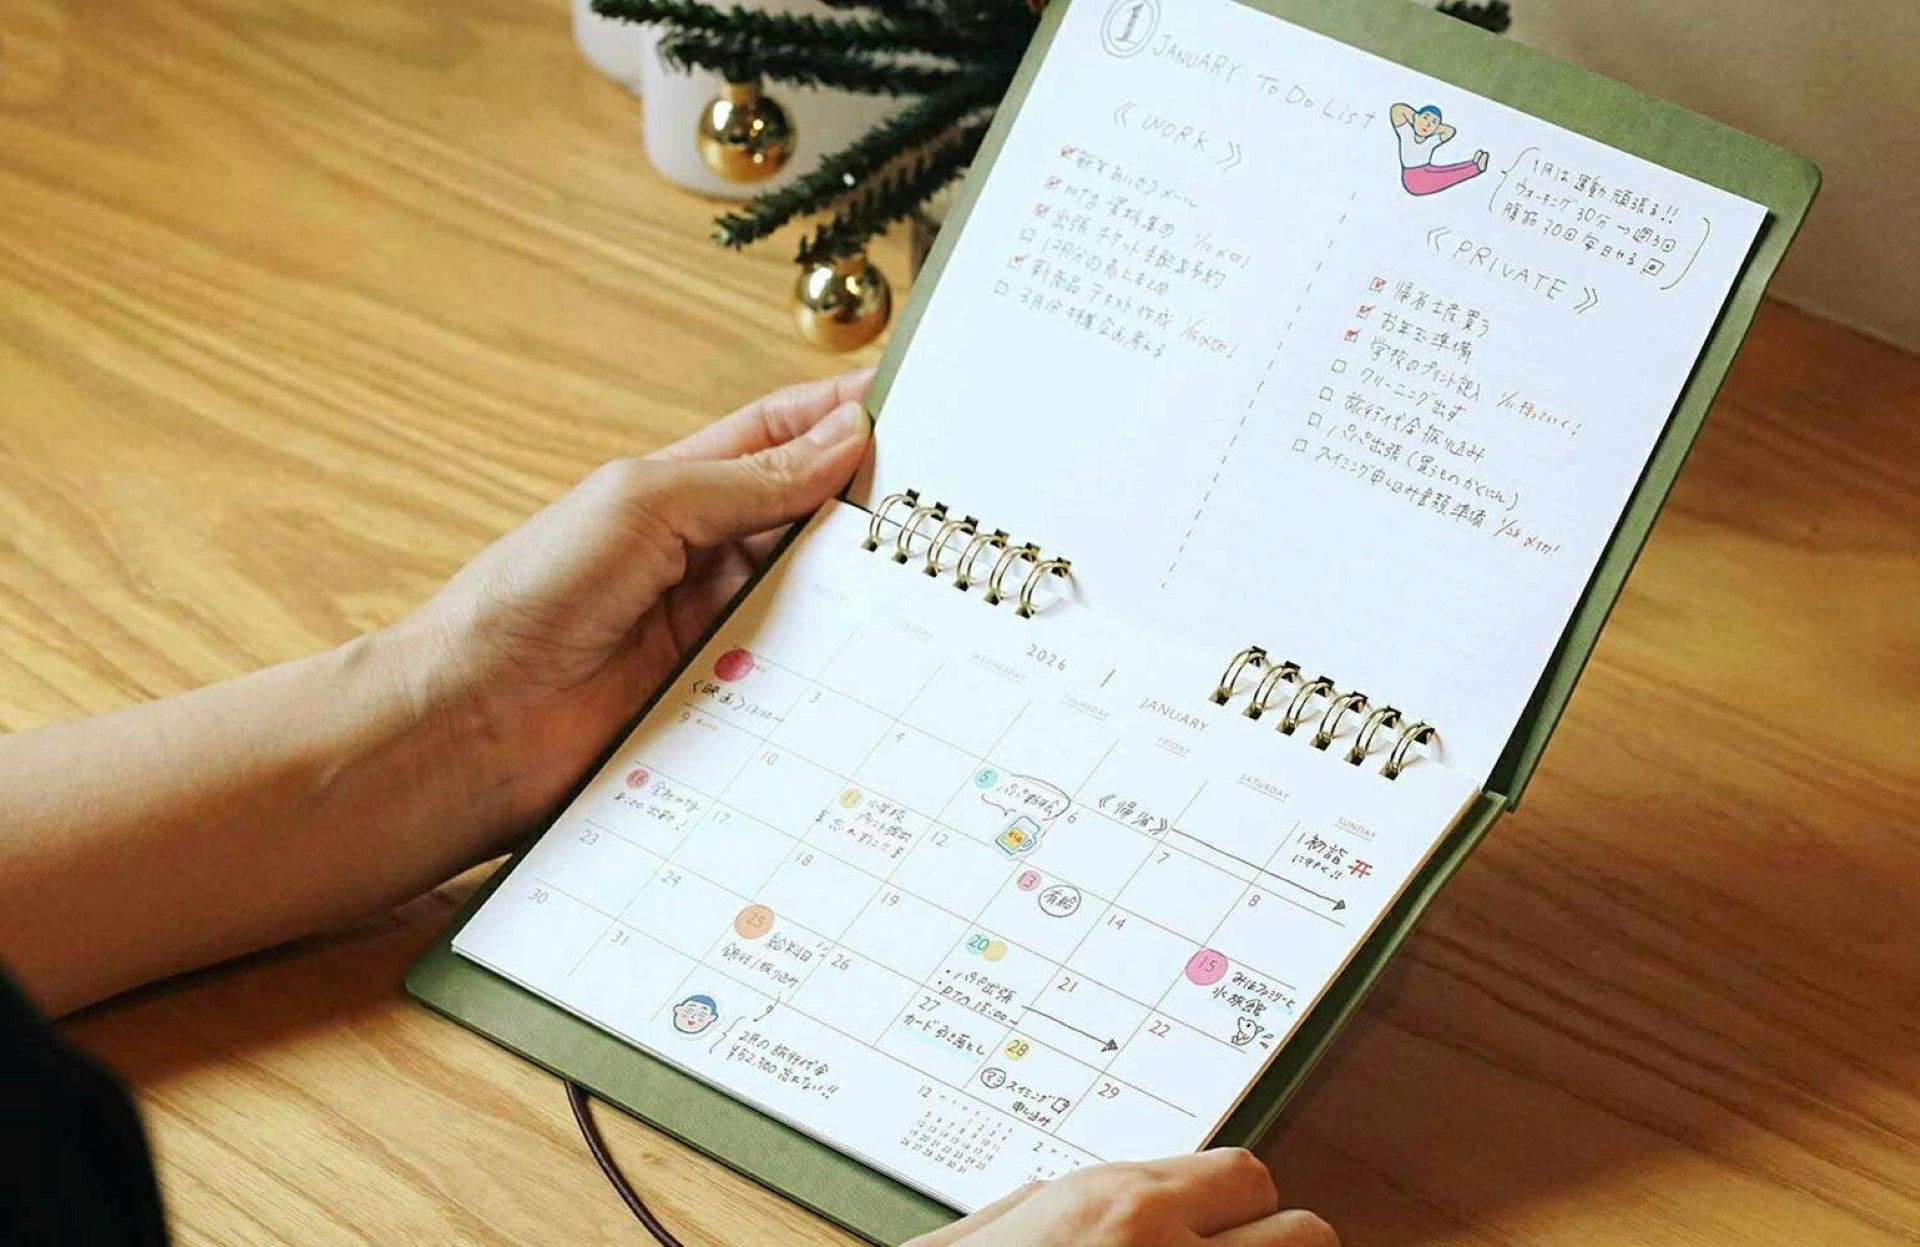 ① JANUARY To Do List
1月は運動頑張る!!
ウォーキング30分→週3回
腹筋30回毎日やる
《WORK》
新年あいさつメール
資料集め
出張チケット手配&予約
12月分の売上まとめ
新商品テキスト作成
3月分特集企画考える
《PRIVATE》
帰省土産買う
お年玉準備
学校のプリント記入 1/11持っていく!
クリーニング出す
旅行代金振り込み
パパ出張(買うものかくにん)
スイミング申し込み書類準備 1/28〆切!
2026 1 JANUARY
MONDAY
TUESDAY
WEDNESDAY
THURSDAY
FRIDAY
SATURDAY
SUNDAY
1 初詣
に行く!!
〈映画〉13:00~
3
4
5 パパ新年会
6
《帰省》
7
8
9
10
11 小学校
プリント提出
忘れずに!!
12
13 有給
14
15 みほファミリーと
水族館
16
8:00
17
18
19
20
・パパ出張
・PTA 15:00~
21
22
23
24
25 給料日
銀行/振り込み
26
27
カード引き落とし
28
スイミング
申し込み
29
30
31
2月の旅行代金
¥52,300忘れない!!
12
2